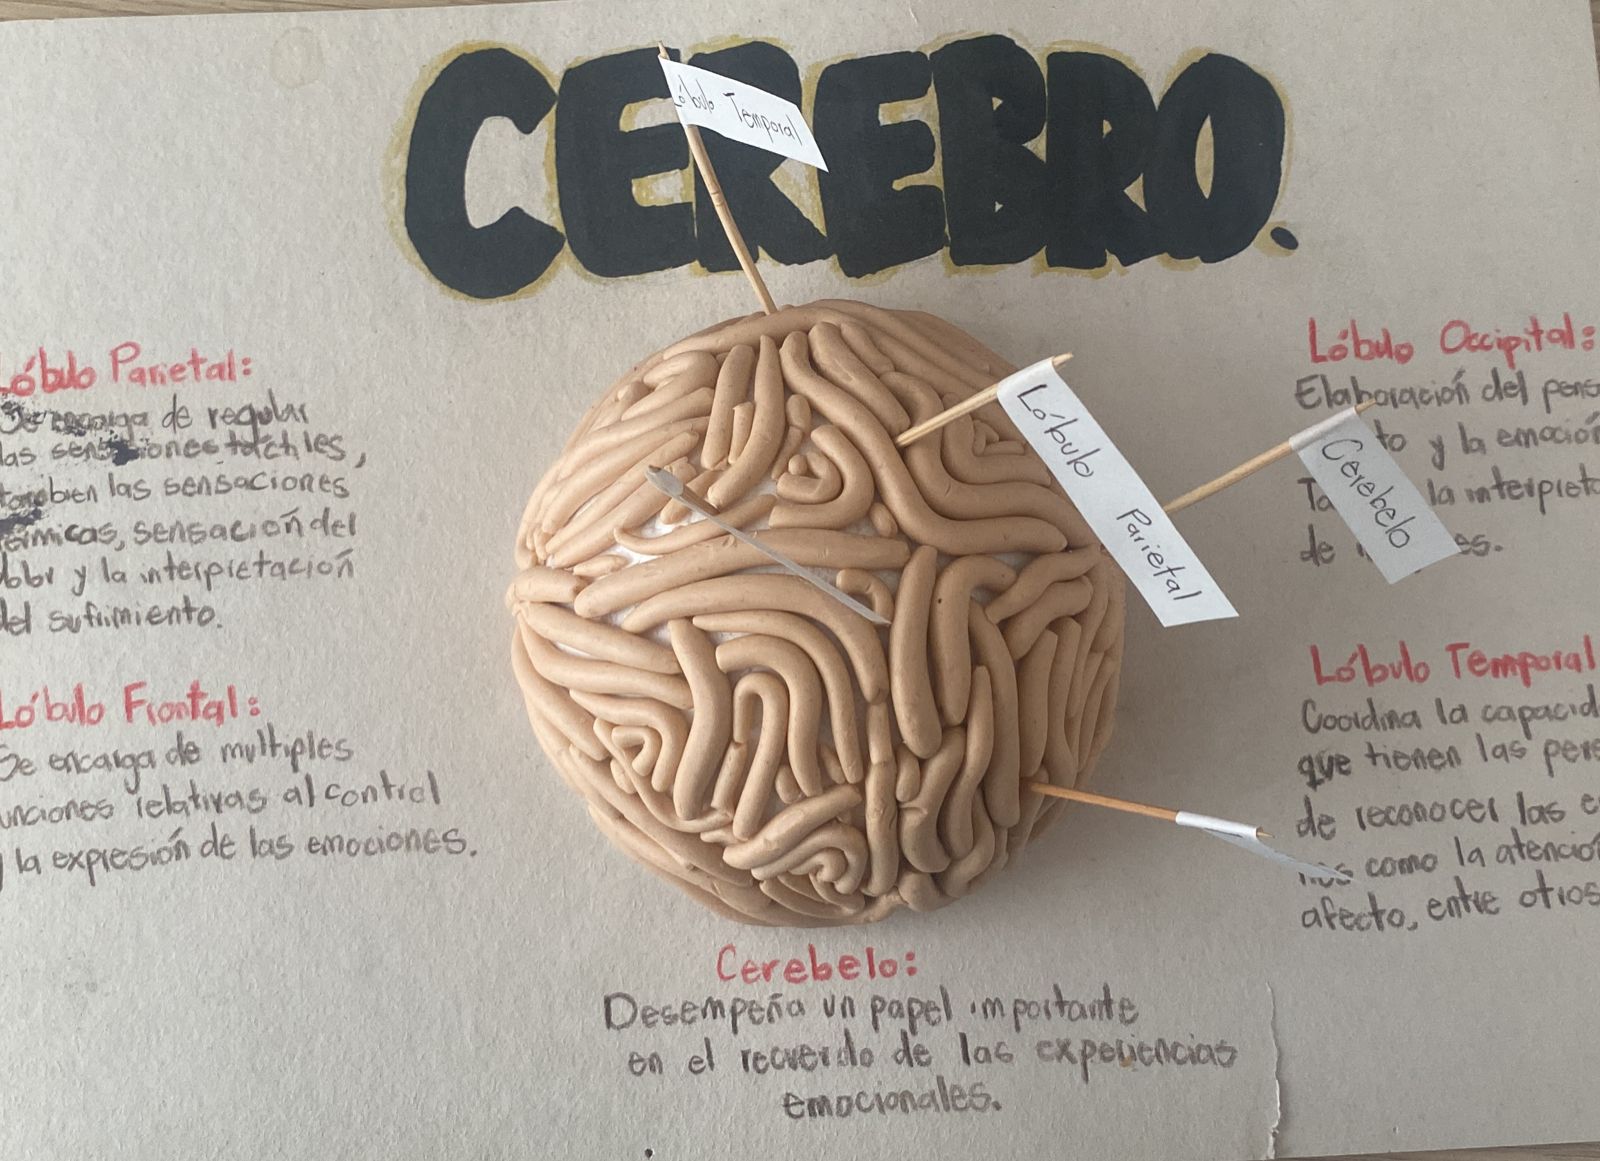 CEREBRO.
Lóbulo Temporal
Lóbulo Parietal
Cerebelo
Lóbulo Parietal:
Se encarga de regular
las sensaciones tactiles,
tambien las sensaciones
termicas, sensación del
dolor y la interpretación
del sufrimiento.
Lóbulo Frontal:
Se encarga de multiples
funciones relativas al control
y la expresión de las emociones.
Lóbulo Occipital:
Elaboración del
y la emoción
la
de
Lóbulo Temporal
Coordina la
que tienen las
de reconocer las
como la
afecto, entre otros
Cerebelo:
Desempeña un papel importante
en el recuerdo de las experiencias
emocionales.